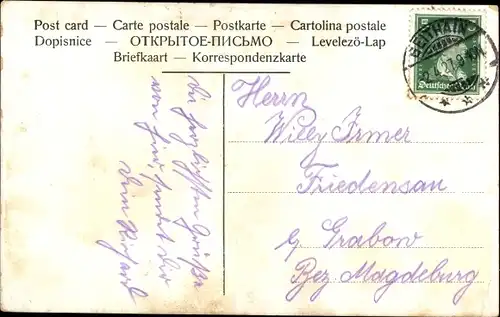 Post card — Carte postale — Postkarte — Cartolina postale
Dopisnice — ОТКРЫТОЕ-ПИСЬМО — Levelező-Lap
Briefkaart — Korrespondenzkarte
Deutsches
Die herzlichsten Grüße
von hier, sendet Dir
Dein Richard
Herrn
Willy Irmer
Friedensau
b. Grabow
Bez Magdeburg